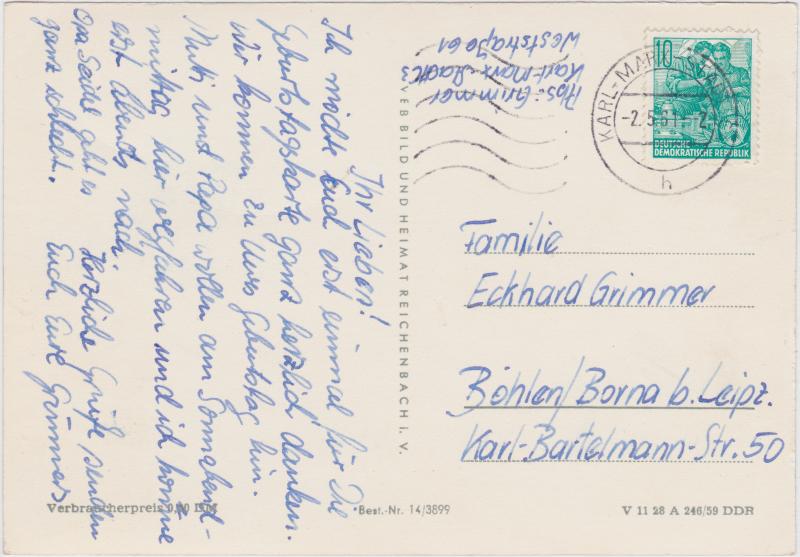 Ihr Lieben!
Ich möchte Euch erst einmal für Die
Geburtstagskarte ganz herzlich danken.
Wir kommen zu Uwes Geburtstag hin.
Mutti und Papa wollen am Sonnabend-
mittag hier wegfahren und ich komme
erst abends nach.
Opa Seidel geht es
ganz schlecht.
Herzliche Grüße senden
Euch Eure Grimmers
VEB BILD UND HEIMAT REICHENBACH i. V.
Abs: Grimmer
Karl-Marx-Stadt
Weststraße 61
KARL-MARX-STADT
-2.5.61
h
10
DEUTSCHE
DEMOKRATISCHE REPUBLIK
Familie
Eckhard Grimmer
Böhlen/Borna b. Leipz.
Karl-Bartelmann-Str. 50
Verbraucherpreis DM
Best.-Nr. 14/3899
V 11 28 A 246/59 DDR